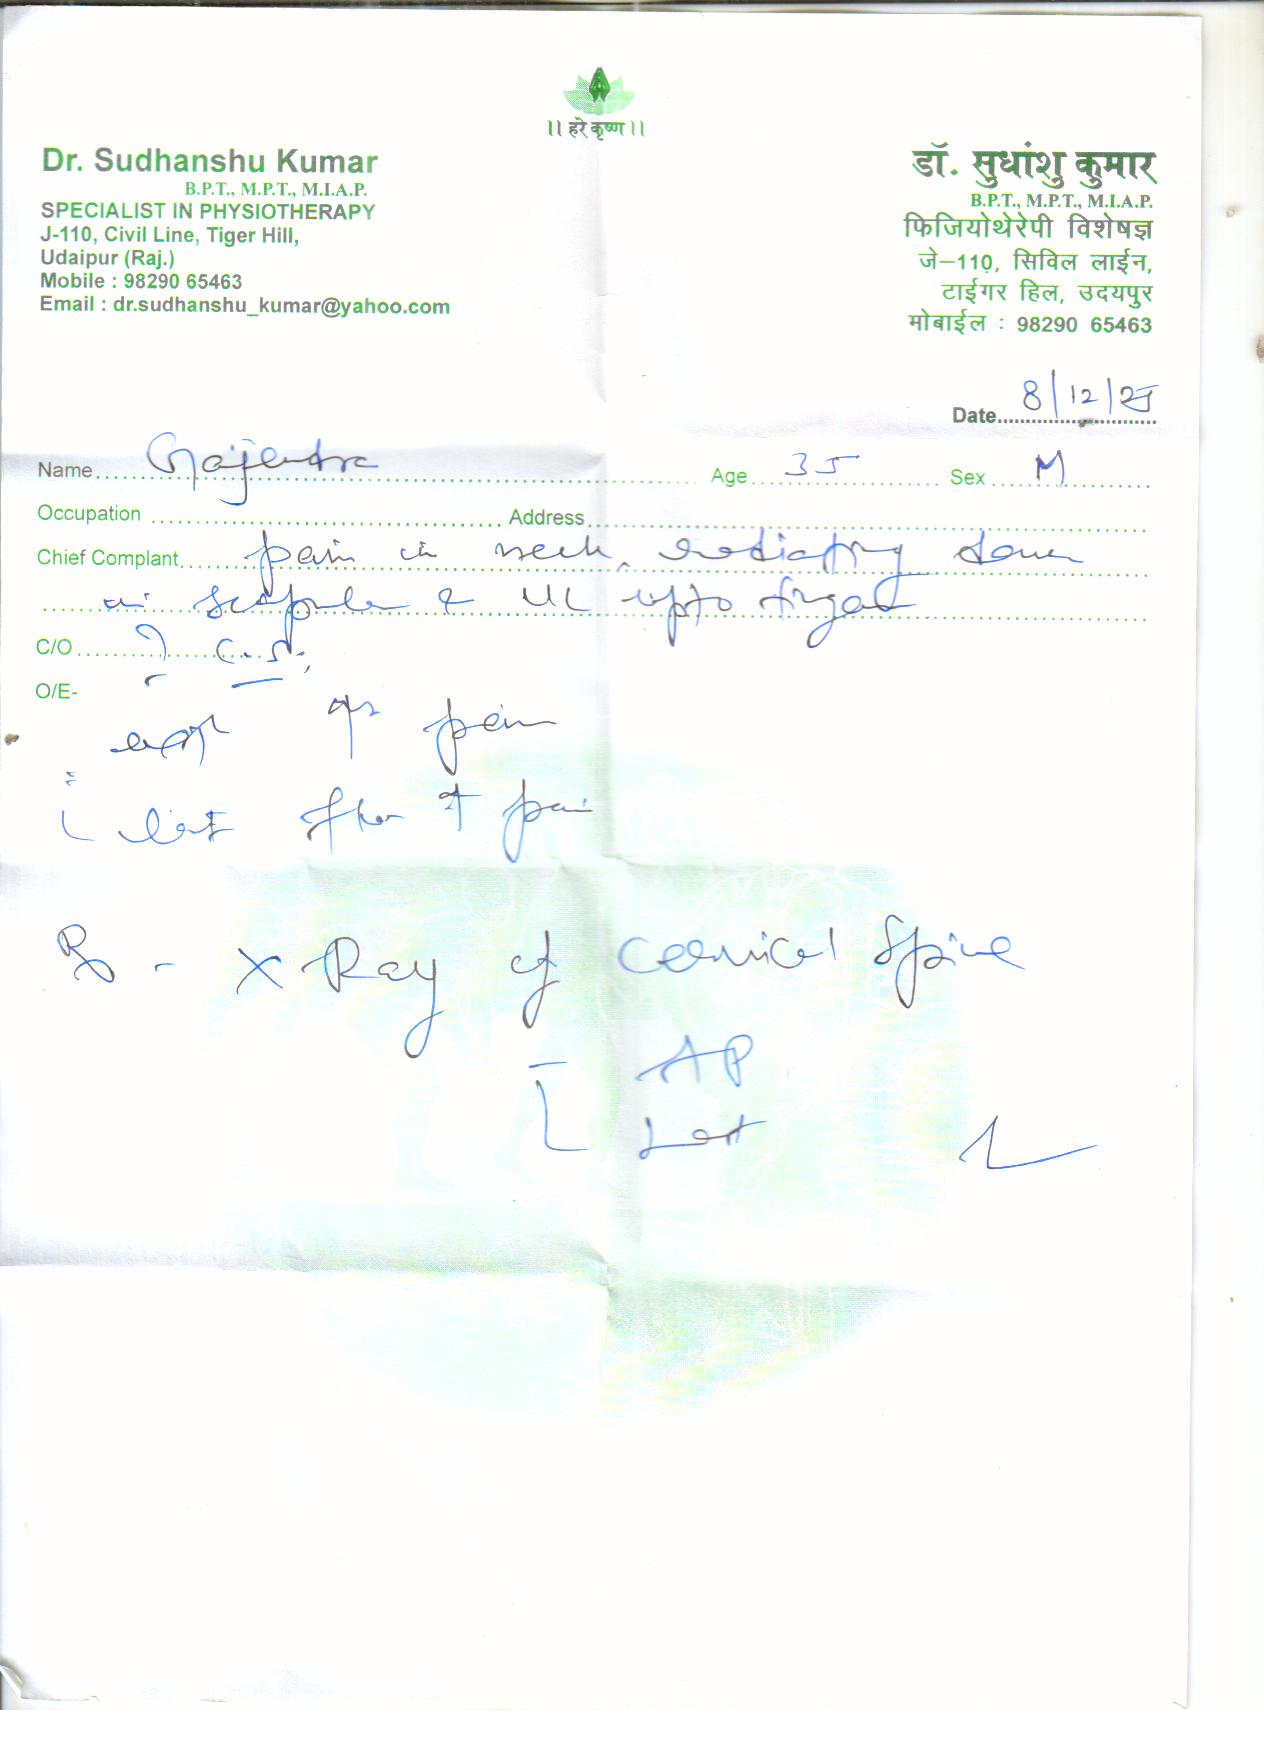 ।। हरे कृष्ण ।।
Dr. Sudhanshu Kumar
B.P.T., M.P.T., M.I.A.P.
SPECIALIST IN PHYSIOTHERAPY
J-110, Civil Line, Tiger Hill,
Udaipur (Raj.)
Mobile : 98290 65463
Email : dr.sudhanshu_kumar@yahoo.com
डॉ. सुधांशु कुमार
B.P.T., M.P.T., M.I.A.P.
फिजियोथेरेपी विशेषज्ञ
जे-110, सिविल लाईन,
टाईगर हिल, उदयपुर
मोबाईल : 98290 65463
Date 8/12/25
Name Gajendra Age 35 Sex M
Occupation Address
Chief Complant pain in neck, radiating down
in scapula & UL upto finger
C/O ? C.S.
O/E-
pain
pain
Rx - X Ray of Cervical Spine
AP
Lat